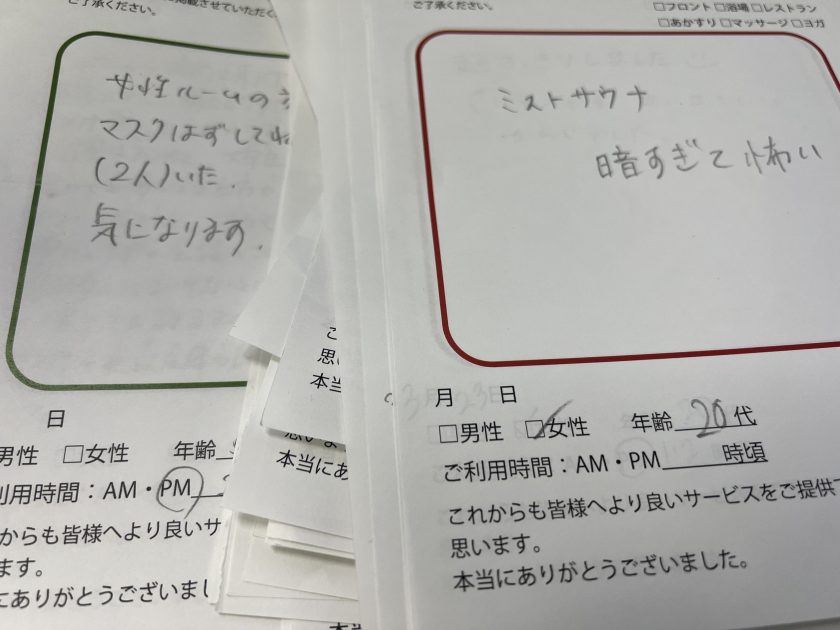 了承ください。
掲載させていただく
女性ルームの
マスクはずしてね
(2人)いた.
気になります.
日
男性 □女性 年齢
利用時間：AM・PM
からも皆様へより良いサ
ます。
にありがとうございまし
こ
思い
本当
思いま
本当にあり
ご了承ください。
□フロント □浴場 □レストラン
□あかすり □マッサージ □ヨガ
ミストサウナ
暗すぎて怖い
3月23日
月 日
□男性 ☑女性 年齢 20代
ご利用時間：AM・PM 時頃
これからも皆様へより良いサービスをご提供
思います。
本当にありがとうございました。